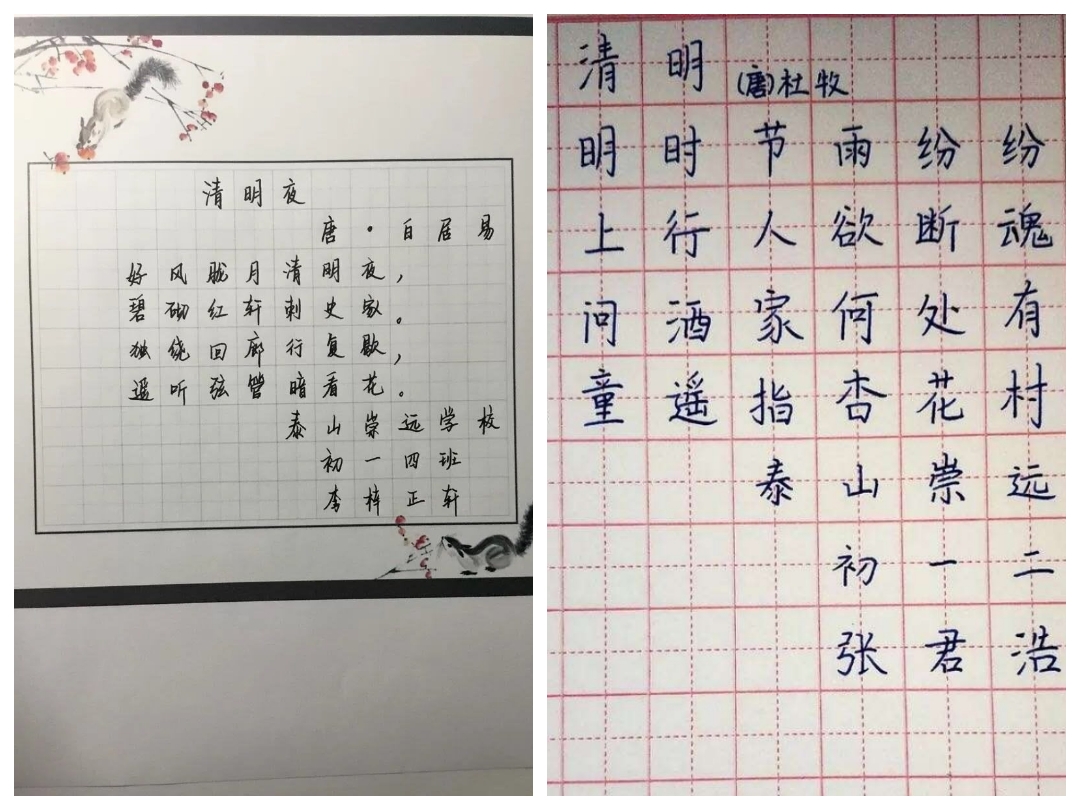 清明夜
唐·白居易
好风胧月清明夜，
碧砌红轩刺史家。
独绕回廊行复歇，
遥听弦管暗看花。
泰山崇远学校
初一四班
李梓正轩
清明(唐)杜牧
明时节雨纷纷
上行人欲断魂
问酒家何处有
童遥指杏花村
泰山崇远
初一二
张君浩